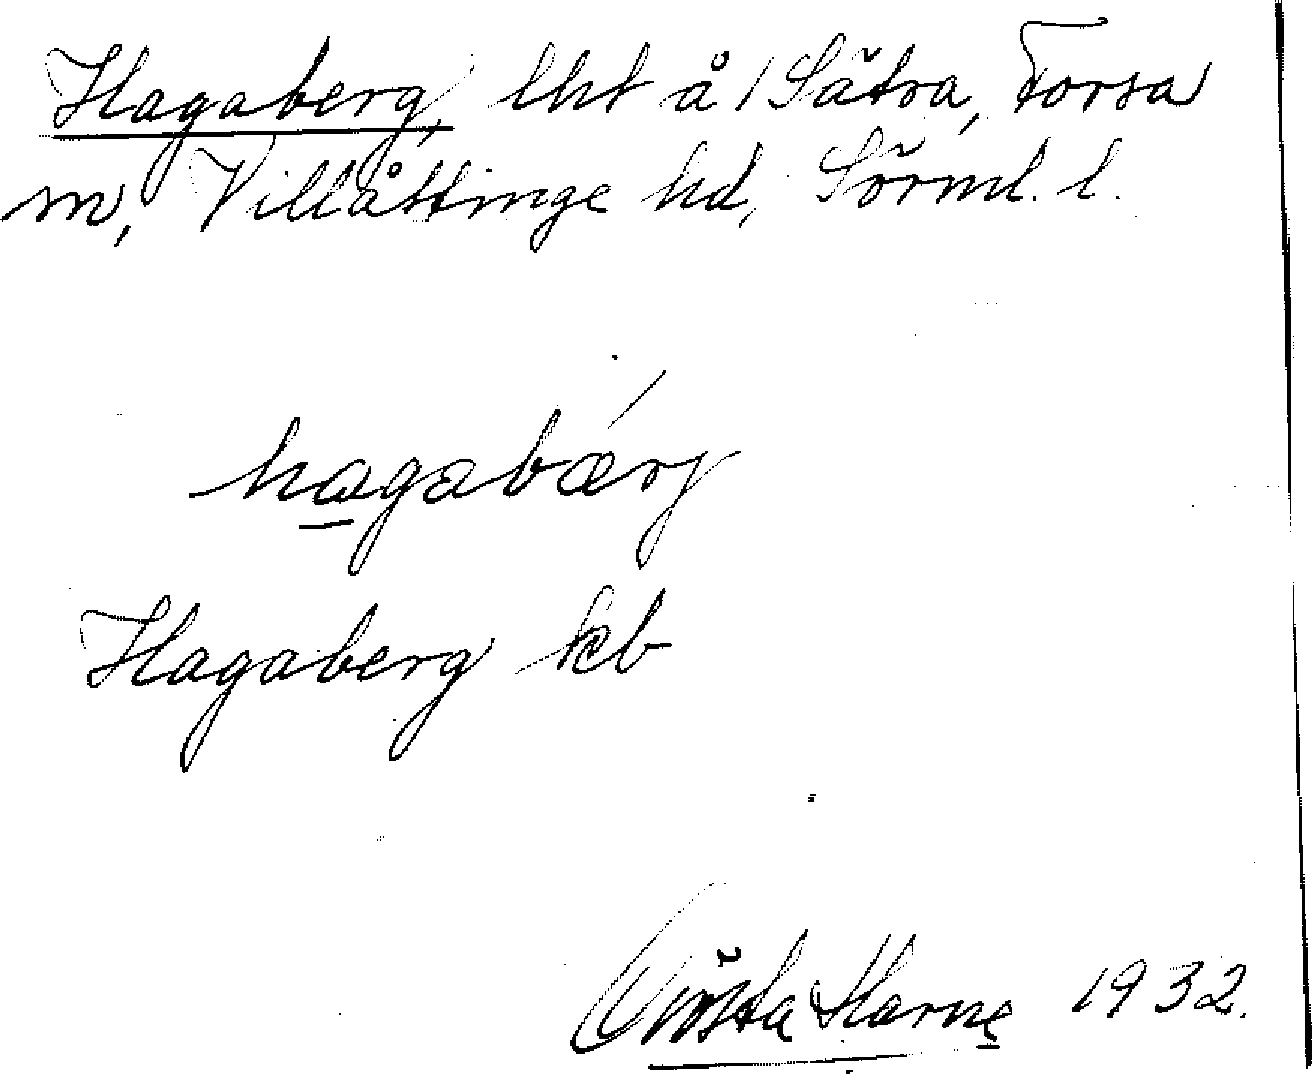 Hagaberg, lht å 1 Sätra, Forsa
sn, Villåttinge hd, Sörml. l.
hagabærj
Hagaberg kb
Gösta Harne 1932.